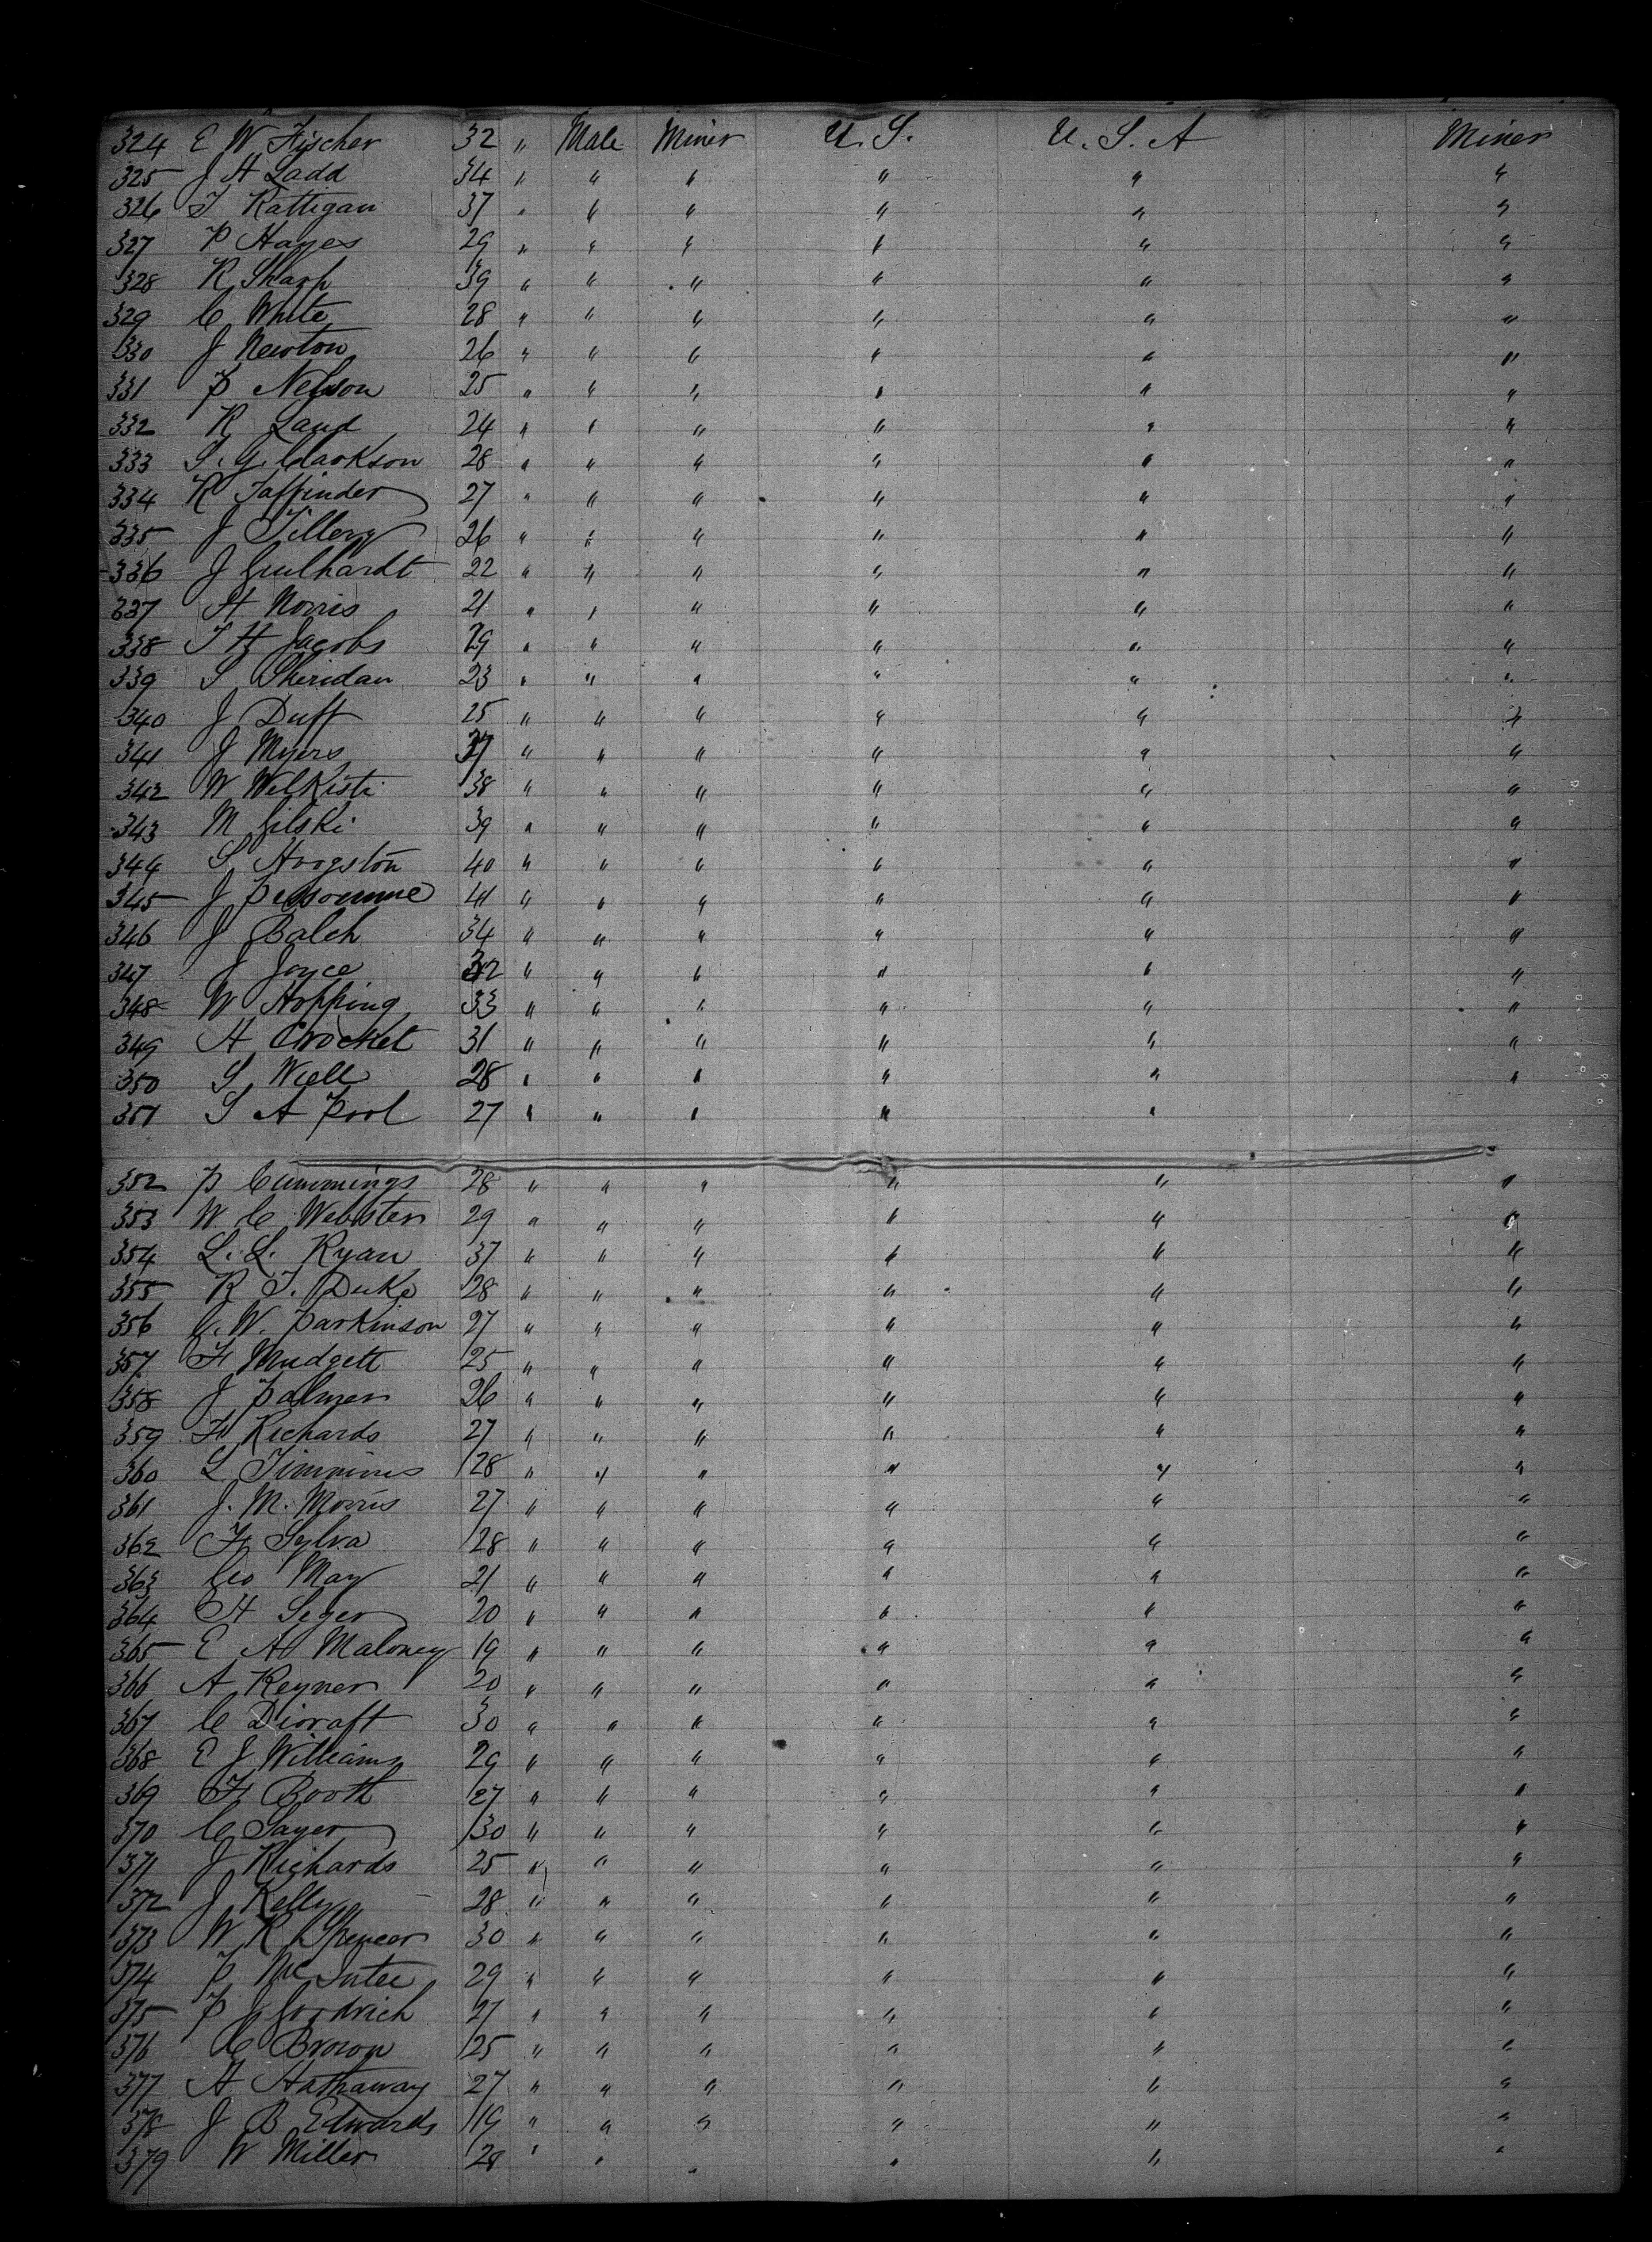 324 E W Fischer 32 " Male Miner U. S. U. S. A Miner
325 J H Ladd 34 " " " " " "
326 T Rattigan 37 " " " " " "
327 P Hayes 29 " " " " " "
328 R Sharp 39 " " " " " "
329 C White 28 " " " " " "
330 J Newton 26 " " " " " "
331 P Nelson 25 " " " " " "
332 R Land 24 " " " " " "
333 S. G. Clarkson 28 " " " " " "
334 R Taffinder 27 " " " " " "
335 J Tillery 26 " " " " " "
336 J Guilhardt 22 " " " " " "
337 H Norris 21 " " " " " "
338 T H Jacobs 29 " " " " " "
339 S Sheridan 23 " " " " " "
340 J Duff 25 " " " " " "
341 J Myers 37 " " " " " "
342 W Welkisti 38 " " " " " "
343 M Gilski 39 " " " " " "
344 S Hoogston 40 " " " " " "
345 J 41 " " " " " "
346 J Balch 34 " " " " " "
347 J Joyce 32 " " " " " "
348 W Hopping 33 " " " " " "
349 H Crocket 31 " " " " " "
350 S Well 28 " " " " " "
351 S A Pool 27 " " " " "
352 P Cummings 28 " " " " " "
353 W C Webster 29 " " " " " "
354 L. L. Ryan 37 " " " " " "
355 R T. Duke 28 " " " " " "
356 C. W. Parkinson 27 " " " " " "
357 H Mudgett 25 " " " " " "
358 J Palmer 26 " " " " " "
359 H Richards 27 " " " " " "
360 L Timmins 28 " " " " " "
361 J. M. Morris 27 " " " " " "
362 F Sylva 28 " " " " " "
363 Geo May 21 " " " " " "
364 H Seger 20 " " " " " "
365 E A Maloney 19 " " " " " "
366 A Reyner 20 " " " " " "
367 C Dioraft 30 " " " " " "
368 E J Williams 29 " " " " " "
369 F Booth 27 " " " " " "
370 C Sayer 30 " " " " " "
371 J Richards 25 " " " " " "
372 J Kelly 28 " " " " " "
373 W R Spencer 30 " " " " " "
374 P McIntee 29 " " " " " "
375 P J Goodrich 27 " " " " " "
376 C Brown 25 " " " " " "
377 A Hathaway 27 " " " " " "
378 J B Edwards 19 " " " " " "
379 W Miller 28 " " " " " "